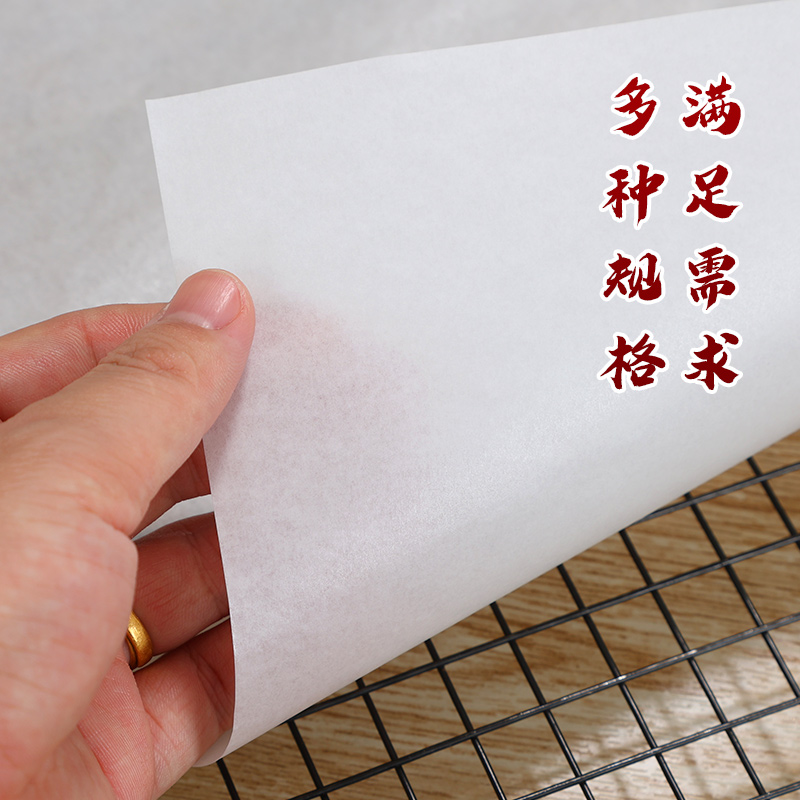 满足需求
多种规格